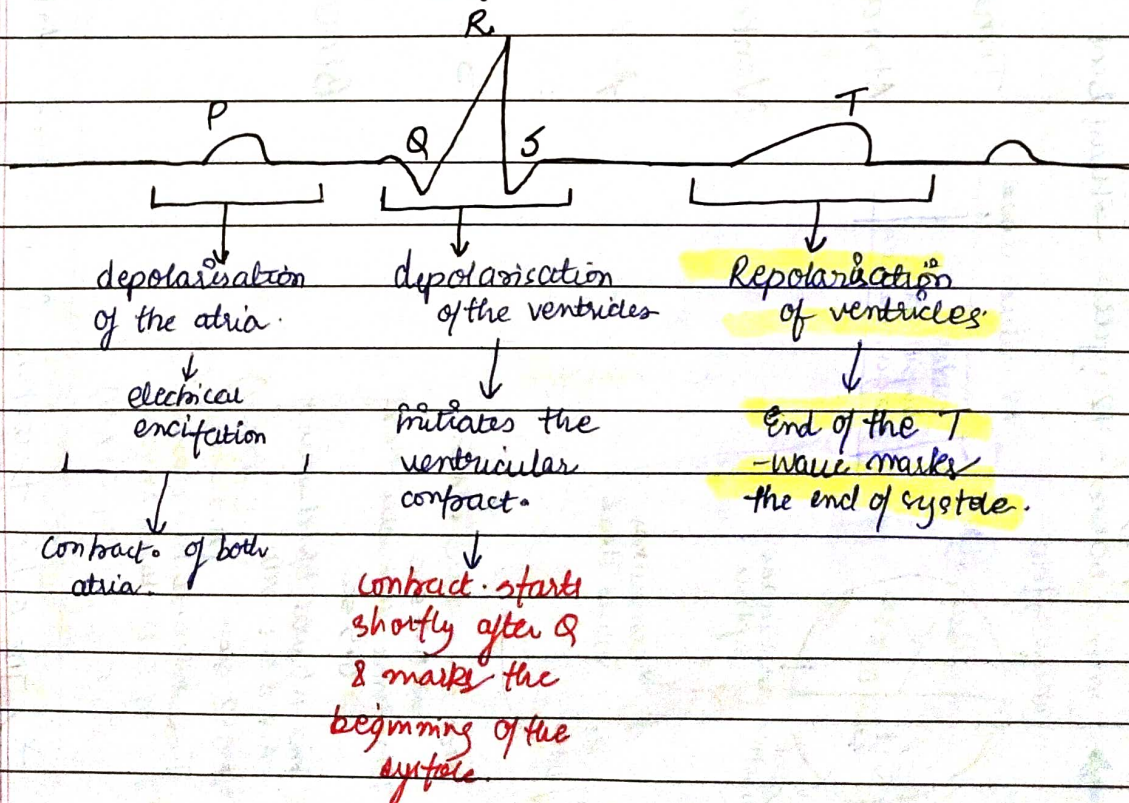 R.
P
Q
S
T
depolarisation
of the atria.
electrical
encitation
contract. of both
atria.
depolarisation
of the ventricles
initiates the
ventricular
contract.
contract. starts
shortly after Q
& marks the
beginning of the
systole.
Repolarisation
of ventricles.
End of the T
-wave marks
the end of systole.